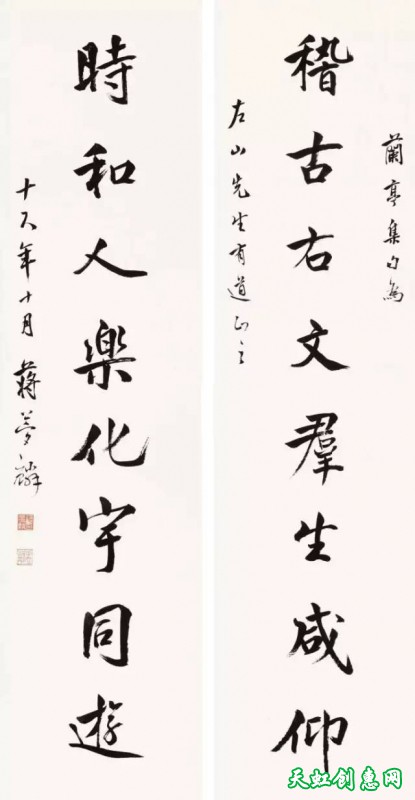 蘭亭集句為
稽古右文羣生咸仰
左山先生有道正之
時和人樂化宇同遊
十八年十月 蔣夢麟
天虹创惠网